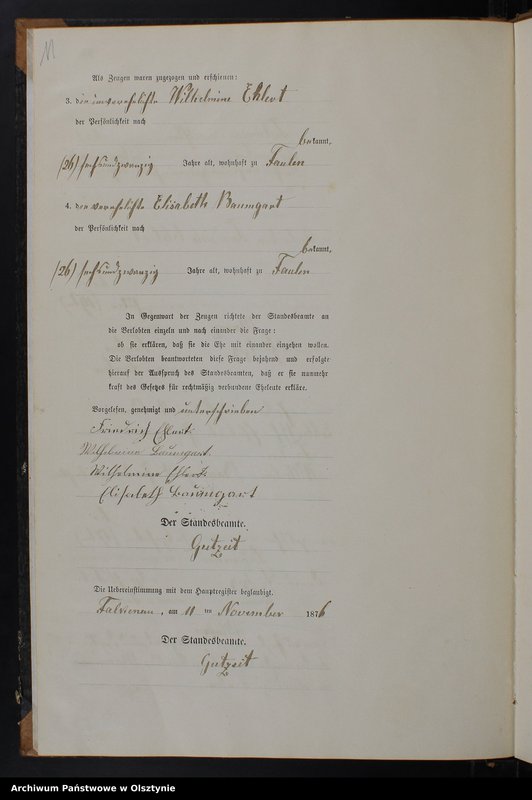 11
Als Zeugen waren zugezogen und erschienen:
3. die unverehelichte Wilhelmine Ehlert
der Persönlichkeit nach
bekannt,
(26) sechsundzwanzig Jahre alt, wohnhaft zu Faulen
4. die verehelichte Elisabeth Baumgart
der Persönlichkeit nach
bekannt,
(26) sechsundzwanzig Jahre alt, wohnhaft zu Faulen
In Gegenwart der Zeugen richtete der Standesbeamte an
die Verlobten einzeln und nach einander die Frage:
ob sie erklären, daß sie die Ehe mit einander eingehen wollen.
Die Verlobten beantworteten diese Frage bejahend und erfolgte
hierauf der Ausspruch des Standesbeamten, daß er sie nunmehr
kraft des Gesetzes für rechtmäßig verbundene Eheleute erkläre.
Vorgelesen, genehmigt und unterschrieben
Friedrich Ehlert.
Wilhelmine Baumgart.
Wilhelmine Ehlert.
Elisabeth Baumgart
Der Standesbeamte.
Gutzeit
Die Uebereinstimmung mit dem Hauptregister beglaubigt.
am 11 ten November 1876
Der Standesbeamte.
Gutzeit
Archiwum Państwowe w Olsztynie